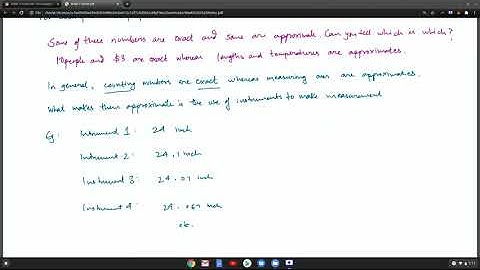 Some of these numbers are exact and some are approximate. Can you tell which is which?
10 people and $3 are exact whereas lengths and temperatures are approximates.
In general, counting numbers are exact whereas measuring ones are approximates.
What makes them approximate is the use of instruments to make measurement
Eg: Instrument 1: 24 inch
Instrument 2: 24.1 inch
Instrument 3: 24.07 inch
Instrument 4: 24.067 inch
etc.